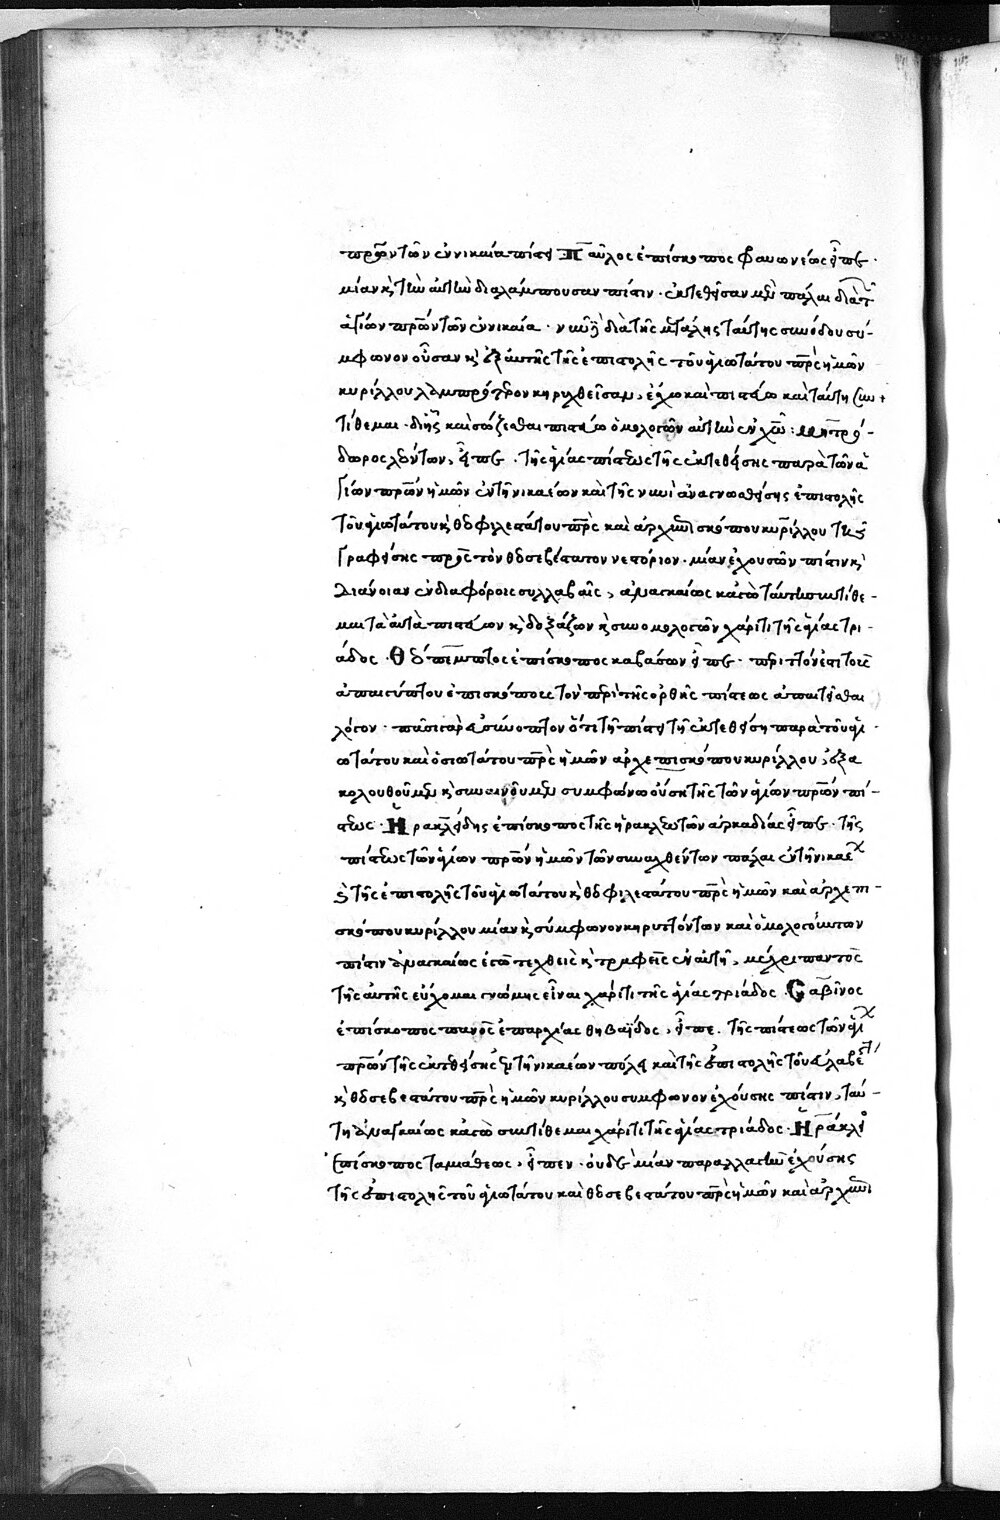 πρων των εν νικαια πιστει Παῦλος ἐπίσκοπος Φαυωνέας εἶπεν·
μίαν κ(αὶ) τὴν αὐτὴν διαλάμπουσαν πίστιν· ἐκτεθεῖσαν μὲν πάλαι διὰ τ(ῶν)
ἁγίων πρων τῶν ἐν νικαία· νυνὶ δὲ διὰ τῆς μεγάλης ταύτης συνόδου σύ-
μφωνον οὖσαν κ(αὶ) ἐξ αὐτῆς τῆς ἐπιστολῆς τοῦ ἁγιωτάτου πρς ἡμῶν
κυρίλλου λαμπρότερον κηρυχθεῖσαν, ἔχω καὶ πιστεύω καὶ ταύτη συν
τίθεμαι· δι' ἧς καὶ σώζεσθαι πιστεύω ὁμολογῶν αὐτὴν ἐν χω: Μητρό-
δωρος λεόντων, εἶπεν· τῆς ἁγίας πίστεως τῆς ἐκτεθείσης παρὰ τῶν ἁ
γίων πρων ἡμῶν ἐν τῆ νικαέων καὶ τῆς νυνὶ ἀναγνωσθείσης ἐπιστολῆς
τοῦ ἁγιωτάτου κ(αὶ) θεοφιλεστάτου πρς καὶ ἀρχιεπισκόπου κυρίλλου τῆς
γραφείσης πρὸς τὸν θεοσεβέστατον νεστόριον· μίαν ἐχουσῶν πίστιν κ(αὶ)
διάνοιαν ἐν διαφόροις συλλαβαῖς, ἀναγκαίως κἀγὼ ταύτη συντίθε-
μαι τὰ αὐτὰ πιστεύων κ(αὶ) δοξάζων κ(αὶ) συνομολογῶν χάριτι τῆς ἁγίας τρι-
άδος· Θεόπεμπτος ἐπίσκοπος καβάσων εἶπεν· περιττὸν ἐστι τοῖς
ἀπ' αἰγύπτου ἐπισκόποις τὸν περὶ τῆς ὀρθῆς πίστεως ἀπαιτεῖσθαι
λόγον· πᾶσι γὰρ εὐσύνοπτον ὅτι τῆ πίστει τῆ ἐκτεθείση παρὰ τοῦ ἁγι-
ωτάτου καὶ ὁσιωτάτου πρς ἡμῶν ἀρχεπισκόπου κυρίλλου, ἐξα
κολουθοῦμεν κ(αὶ) συναινοῦμεν συμφώνω οὔση τῆς τῶν ἁγίων πρων πί-
στεως· Ἡρακλείδης ἐπίσκοπος τῆς ἡρακλεωτῶν ἀρκαδίας εἶπεν· τῆς
πίστεως τῶν ἁγίων πρων ἡμῶν τῶν συναχθέντων πάλαι ἐν τῆ νικαέ(ων)
κ(αὶ) τῆς ἐπιστολῆς τοῦ ἁγιωτάτου κ(αὶ) θεοφιλεστάτου πρς ἡμῶν καὶ ἀρχεπι-
σκόπου κυρίλλου μίαν κ(αὶ) σύμφωνον κηρυττόντων καὶ ὁμολογούντων
πίστιν ἀναγκαίως ἐγὼ τεχθεὶς κ(αὶ) τραφεὶς ἐν αὐτῆ, μέχρι παντὸς
τῆς αὐτῆς εὔχομαι γνώμης εἶναι χάριτι τῆς ἁγίας τριάδος· Σαβῖνος
ἐπίσκοπος πανὸς ἐπαρχίας θηβαΐδος, εἶπε. τῆς πίστεως τῶν ἁγί(ων)
πρων τῆς ἐκτεθείσης ἐν τῆ νικαέων πόλει καὶ τῆς ἐπιστολῆς τοῦ εὐλαβεστ
κ(αὶ) θεοσεβεστάτου πρς ἡμῶν κυρίλλου σύμφωνον ἐχούσης πίστιν, ταύ-
τη ἀναγκαίως κἀγὼ συντίθεμαι χάριτι τῆς ἁγίας τριάδος· Ἡράκλει(ος)
ἐπίσκοπος ταμιάθεως, εἶπεν· οὐδεμίαν παραλλαγὴν ἐχούσης
τῆς ἐπιστολῆς τοῦ ἁγιωτάτου καὶ θεοσεβεστάτου πρς ἡμῶν καὶ ἀρχιεπι